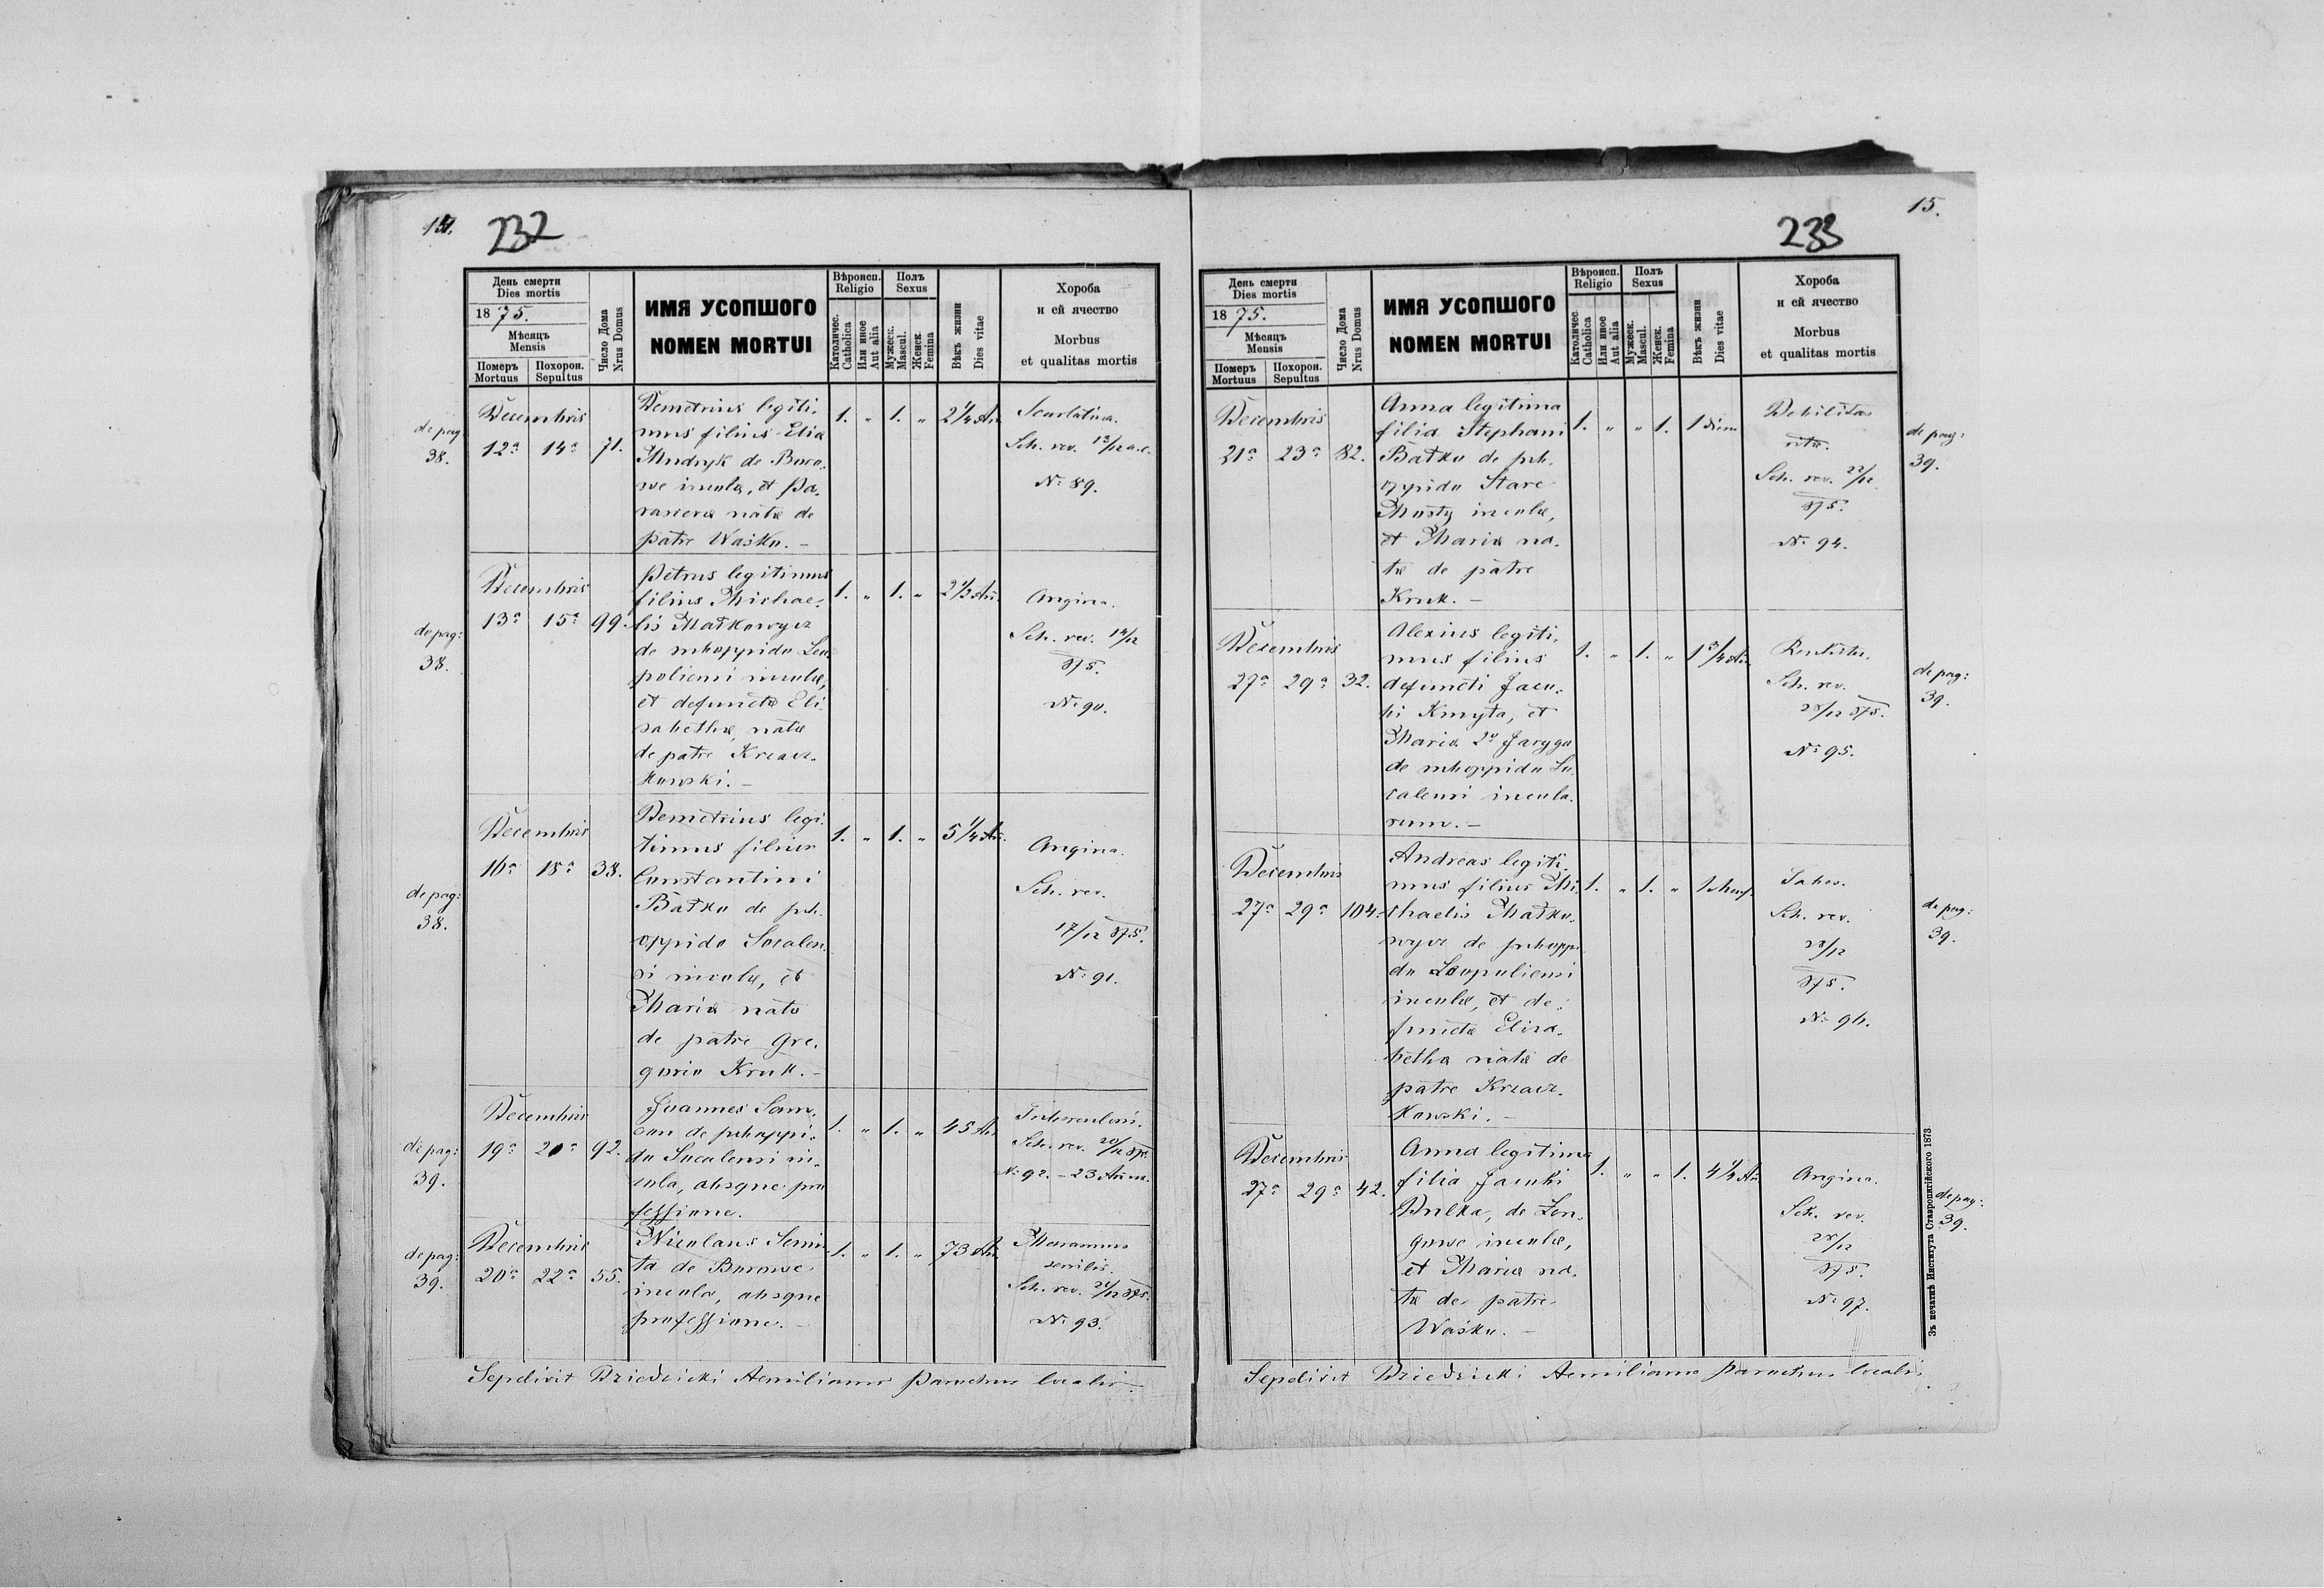 14.
232
День смерти
Dies mortis
1875.
Мѣсяцъ
Mensis
Померъ
Mortuus
Похорон.
Sepultus
Число Дома
Nrus Domus
ИМЯ УСОПШОГО
NOMEN MORTUI
Вѣроисп.
Religio
Католичес.
Catholica
Или иное
Aut alia
Полъ
Sexus
Мужеск.
Mascul.
Женск.
Femina
Вѣкъ жизни
Dies vitae
Хороба
и ей ячество
Morbus
et qualitas mortis
de pag
38.
Decembris
12a 14a 71.
Demetrius legiti-
mus filius Eliæ
Mudryk de Boro-
we incolæ, et Pa-
rascevæ natæ de
patre Waśko. –
1. „ 1. „ 2 1/4 An.
Scarlatina.
Sch. rev. 13/12 a.c.
No 89.
de pag:
38.
Decembris
13a 15a 99.
Petrus legitimus
filius Michae-
lis Małkowycz
de suboppido Leo-
poliensi incolæ,
et defunctæ Eli-
sabethæ, natæ
de patre Kreacz-
kowski. –
1. „ 1. „ 2 1/2 An.
Angina.
Sch. rev. 14/12
875.
No 90.
de pag:
38.
Decembris
16a 18a 38.
Demetrius legi-
timus filius
Constantini
Bałko de sub-
oppido Socalen-
si incolæ, et
Mariæ natæ
de patre Gre-
gorio Kruk. –
1. „ 1. „ 5 1/4 An.
Angina.
Sch. rev.
17/12 875.
No 91.
de pag:
39.
Decembris
19a 20a 92.
Joannes Sam-
son de suboppi-
do Socalensi in-
cola, absque pro-
fessione.
1. „ 1. „ 45 An
Tuberculosis.
Sch. rev. 20/12 875.
No 92. – 23 Ann.
de pag:
39.
Decembris
20a 22a 55.
Nicolaus
de Borowe
incola, absque
professione. –
1. „ 1. „ 73 An.
Marasmus
senilis.
Sch. rev. 21/12 875.
No 93.
Sepelivit Dziedzicki Aemilianus Parochus localis.
15.
233
День смерти
Dies mortis
1875.
Мѣсяцъ
Mensis
Померъ
Mortuus
Похорон.
Sepultus
Число Дома
Nrus Domus
ИМЯ УСОПШОГО
NOMEN MORTUI
Вѣроисп.
Religio
Католичес
Catholica
Или иное
Aut alia
Полъ
Sexus
Мужеск.
Mascul.
Женск.
Femina
Вѣкъ жизни
Dies vitae
Хороба
и ей ячество
Morbus
et qualitas mortis
Decembris
21a 23a 82.
Anna legitima
filia Stephani
Bałko de sub-
oppido Stare
Mosty incolæ,
et Mariæ na-
tæ de patre
Kruk. –
1. „ „ 1. 1 diem
Debilitas
vitæ.
Sch. rev. 22/12
875.
No 94.
de pag:
39.
Decembris
27a 29a 32.
Alexius legiti-
mus filius
defuncti Jaco-
bi Kmyta, et
Mariæ 2o Jaryga
de suboppido So-
calensi incola-
rum. –
1. „ 1. „ 1 3/4 An.
Sch. rev.
28/12 875.
No 95.
de pag:
39.
Decembris
27a 29a 104.
Andreas legiti-
mus filius Mi-
chaelis Małko-
wycz de subopp-
do Leopoliensi
incolæ, et de-
functæ Elisa-
bethæ natæ de
patre Kreacz-
kowski. –
1. „ 1. „
Tabes.
Sch. rev.
28/12
875.
No 96.
de pag:
39.
Decembris
27a 29a 42.
Anna legitima
filia Jacobi
Dulka, de Zon-
gowe incolæ,
et Mariæ na-
tæ de patre
Waśko. –
1. „ „ 1. 4 1/4 An
Angina.
Sch. rev.
28/12
875.
No 97.
de pag:
39.
Sepelivit Dziedzicki Aemilianus Parochus localis.
Зъ печатнѣ Института Ставропигійского 1873.